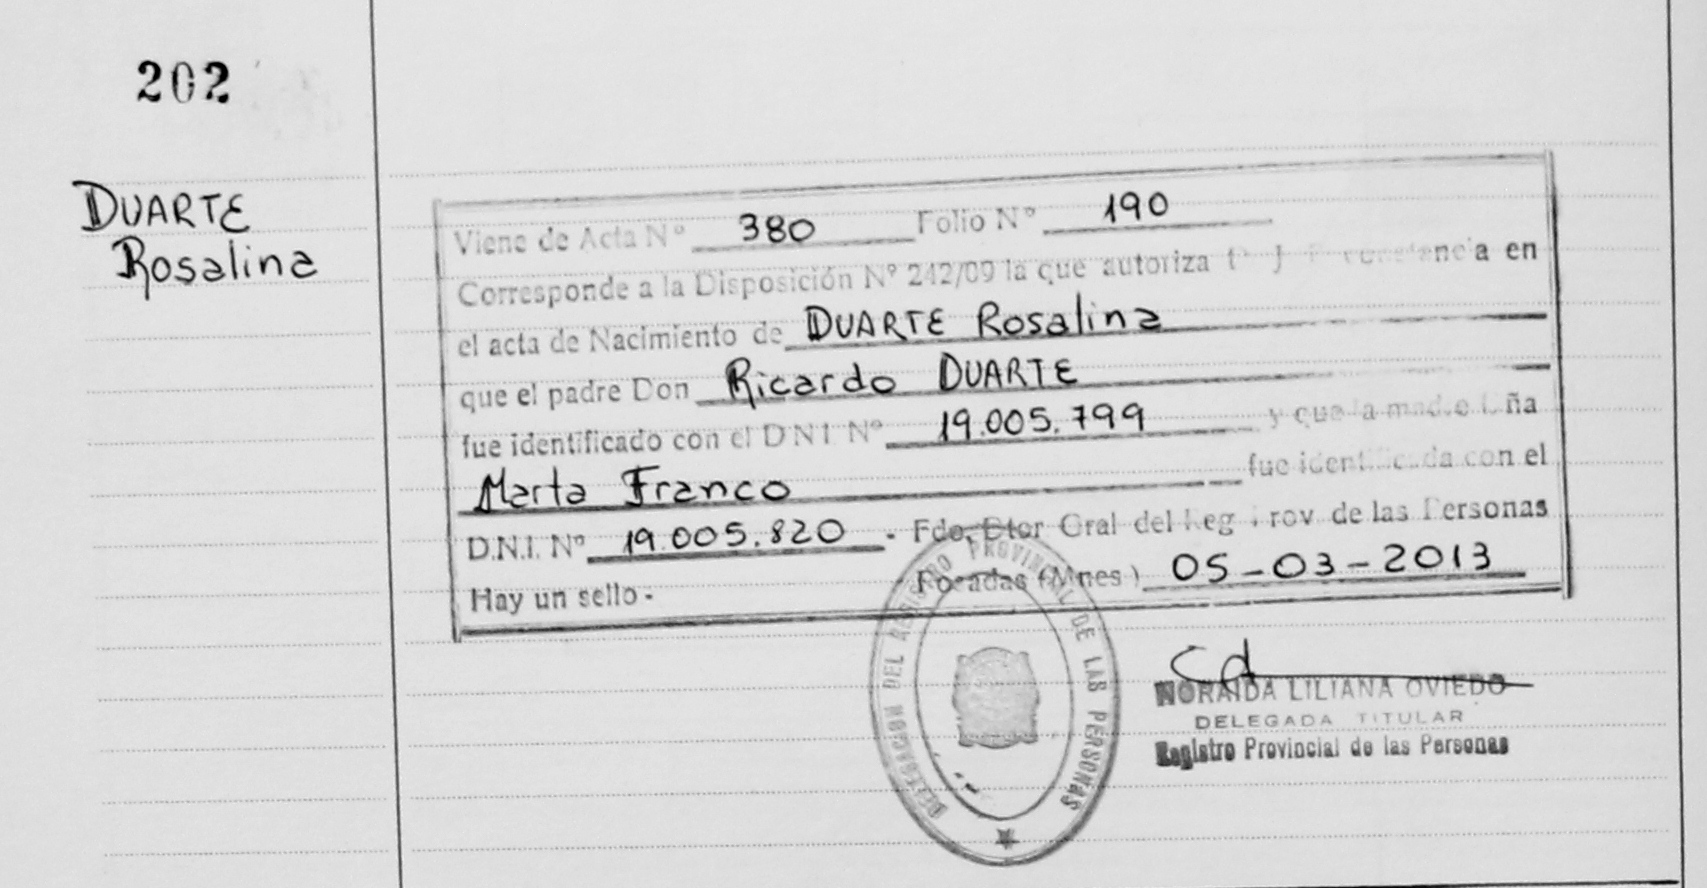 202
DUARTE
Rosalina
Viene de Acta Nº 380 Folio Nº 190
Corresponde a la Disposición Nº 242/09 la que autoriza en
el acta de Nacimiento de DUARTE Rosalina
que el padre Don Ricardo DUARTE
fue identificado con el D N I Nº 19.005.799 y que la madre ña
Marta Franco fue identificada con el
D.N.I. Nº 19.005.820 - Fdo, Dtor Gral del Reg Prov de las Personas
Hay un sello - Posadas (Mnes) 05-03-2013
DELEGACION DEL REGISTRO PROVINCIAL DE LAS PERSONAS
NORAIDA LILIANA OVIEDO
DELEGADA TITULAR
Registro Provincial de las Personas